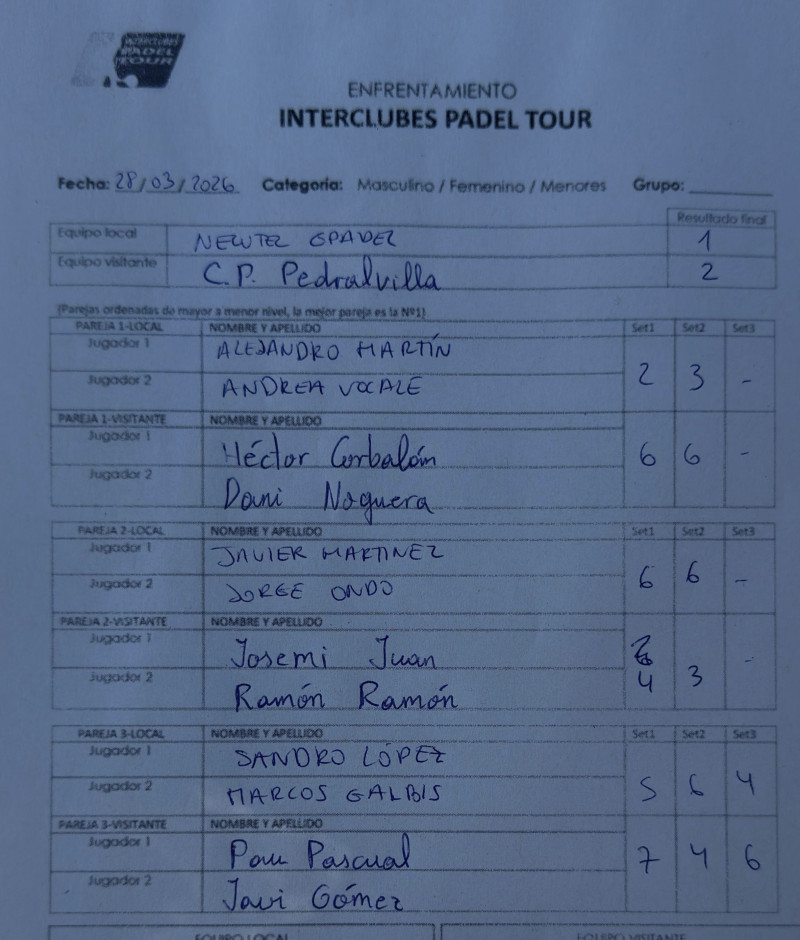 INTERCLUBES
PADEL
TOUR
ENFRENTAMIENTO
INTERCLUBES PADEL TOUR
Fecha: 28/03/2026 Categoría: Masculino / Femenino / Menores Grupo:
Resultado final
Equipo local NEWTEL GPADEL 1
Equipo visitante C.P. Pedralvilla 2
(Parejas ordenadas de mayor a menor nivel, la mejor pareja es la Nº1)
PAREJA 1-LOCAL NOMBRE Y APELLIDO Set1 Set2 Set3
Jugador 1 ALEJANDRO MARTÍN
2 3 -
Jugador 2 ANDREA VOCALE
PAREJA 1-VISITANTE NOMBRE Y APELLIDO
Jugador 1 Héctor Corbalán
6 6 -
Jugador 2 Dani Noguera
PAREJA 2-LOCAL NOMBRE Y APELLIDO Set1 Set2 Set3
Jugador 1 JAVIER MARTINEZ
6 6 -
Jugador 2 JORGE ONDO
PAREJA 2-VISITANTE NOMBRE Y APELLIDO
Jugador 1 Josemi Juan
4 3 -
Jugador 2 Ramón Ramón
PAREJA 3-LOCAL NOMBRE Y APELLIDO Set1 Set2 Set3
Jugador 1 SANDRO LÓPEZ
5 6 4
Jugador 2 MARCOS GALBIS
PAREJA 3-VISITANTE NOMBRE Y APELLIDO
Jugador 1 Pau Pascual
7 4 6
Jugador 2 Javi Gómez
EQUIPO LOCAL EQUIPO VISITANTE